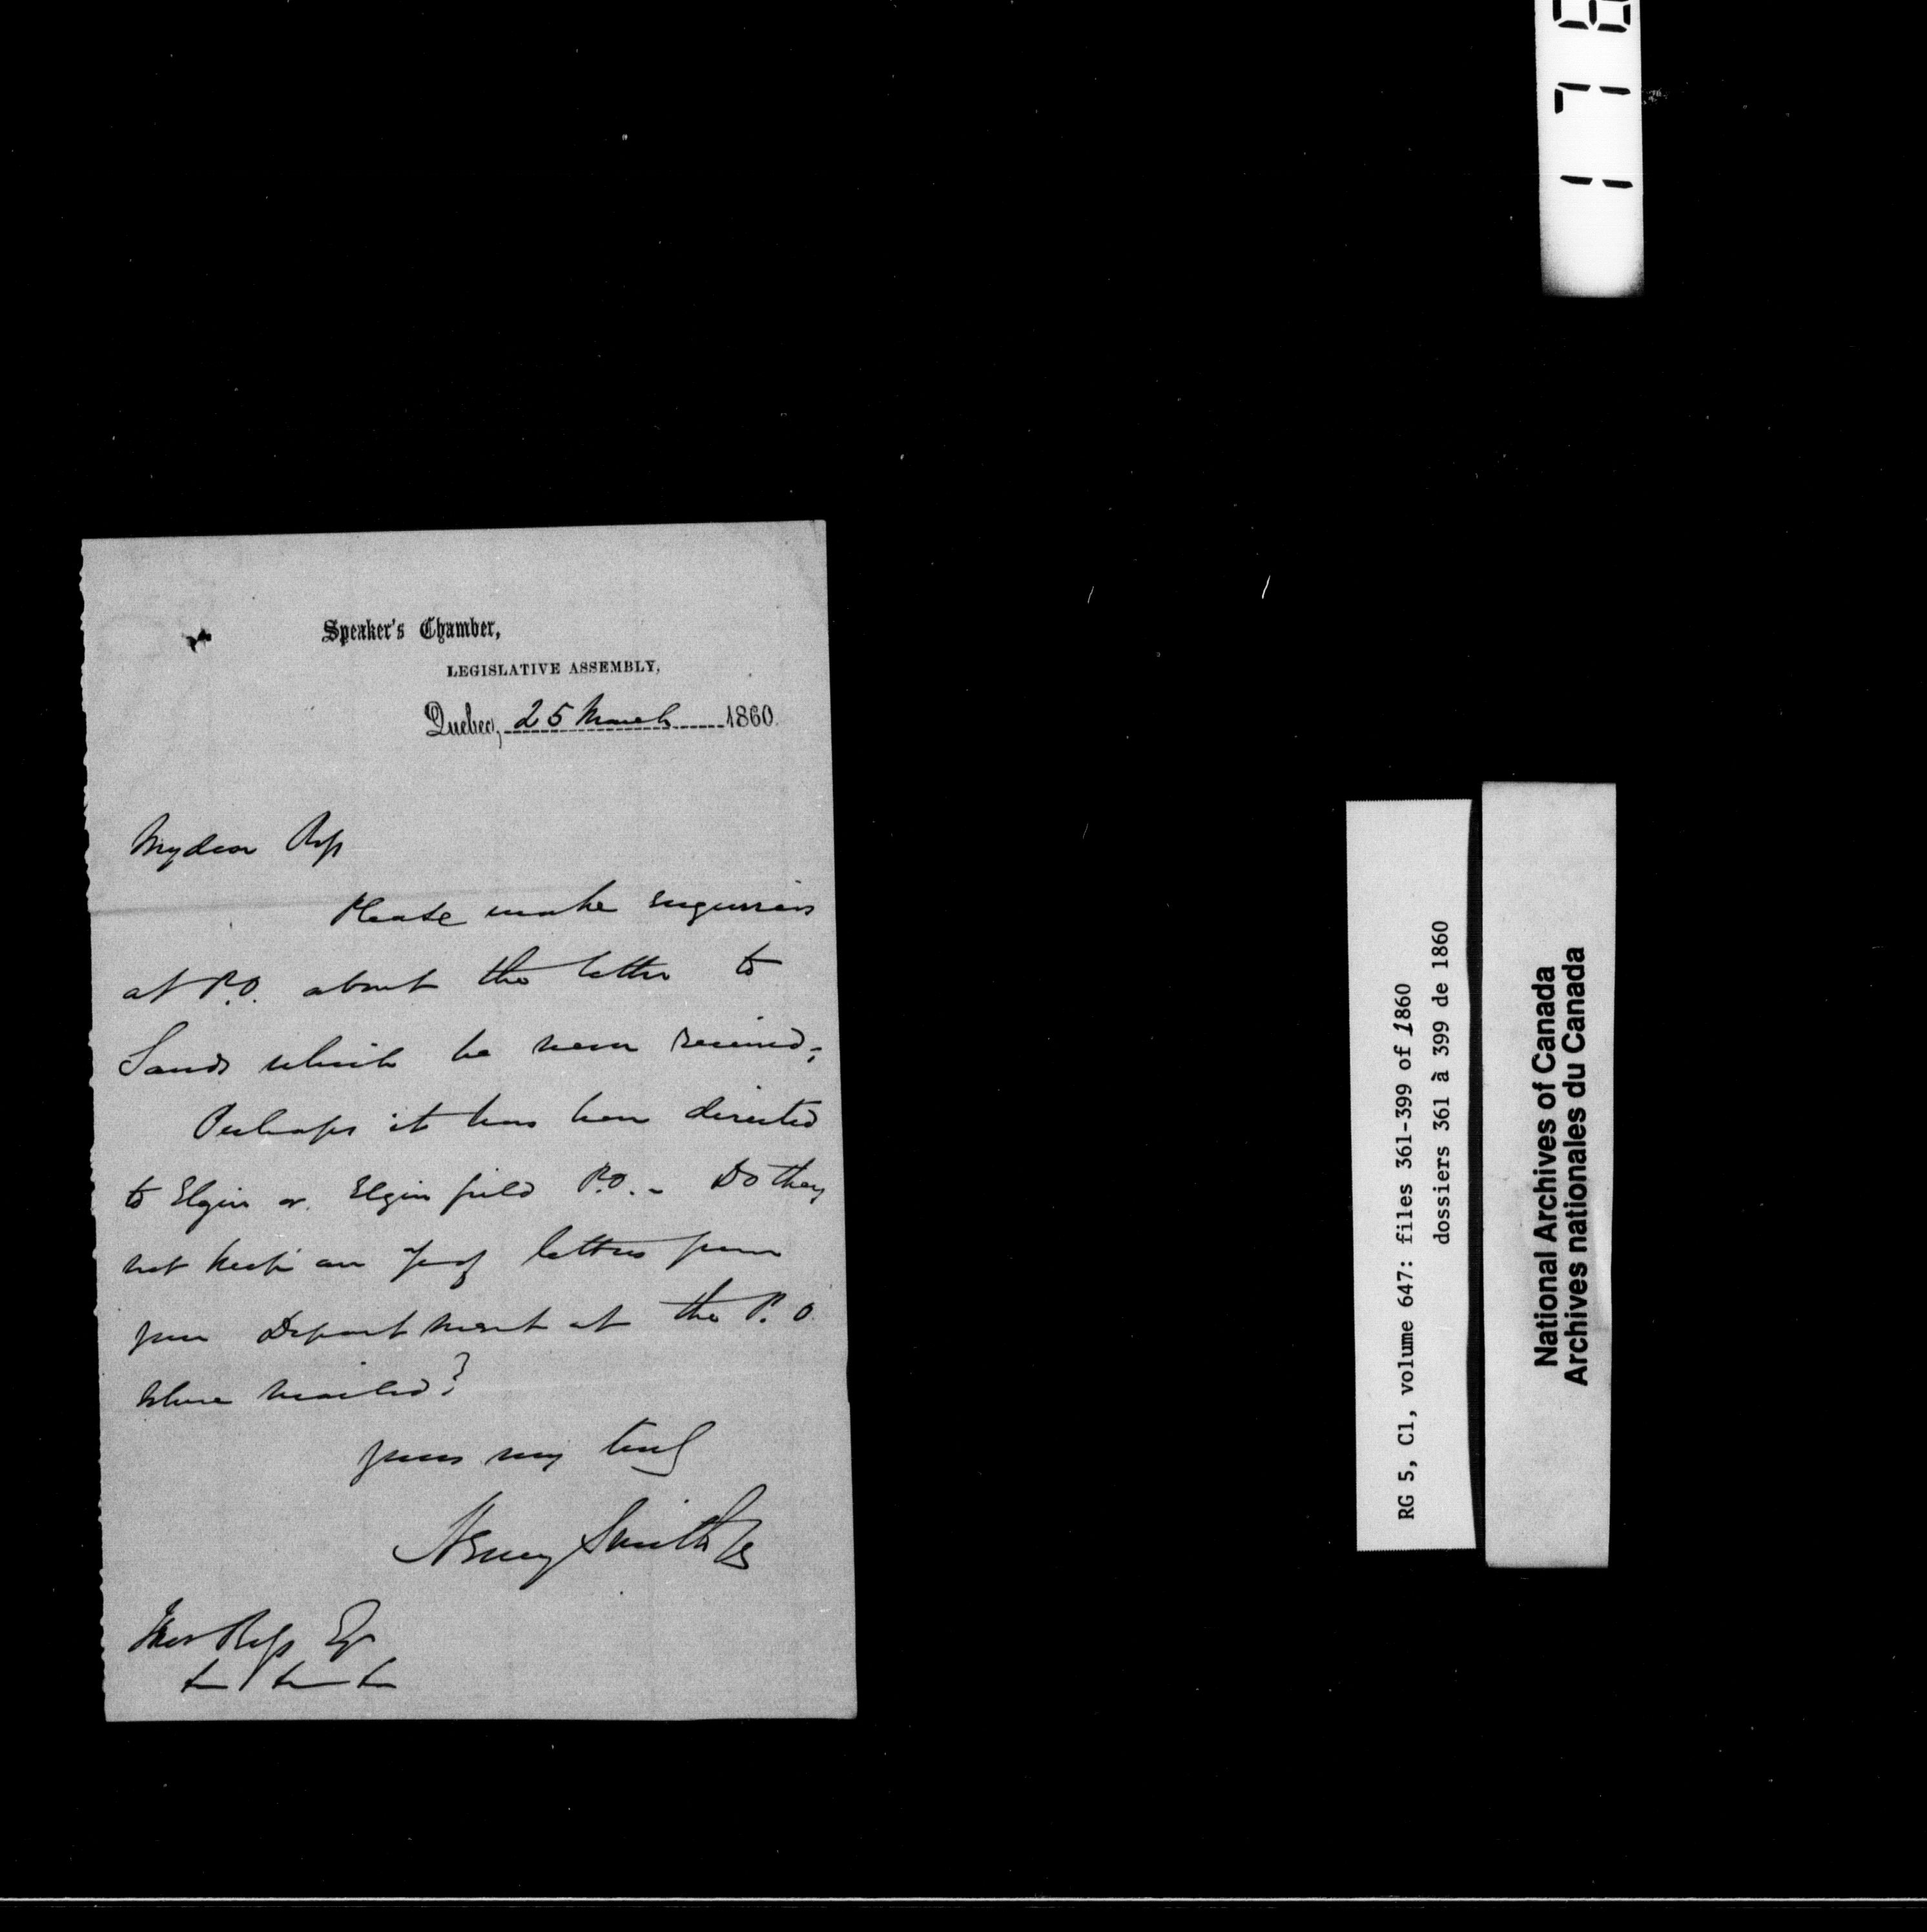 Speaker's Chamber,
LEGISLATIVE ASSEMBLY,
Quebec, 25 March 1860.
My dear Ross
Please make enquiries
at P.O. about the letter to
Sands which he never received;
Perhaps it has been directed
to Elgin or Elginfield P.O. - Do they
not keep an a/c of letters from
your Department at the P.O.
where mailed?
Yours very truly
Henry Smith Jr
Thos Ross Esq
RG 5, C1, volume 647: files 361-399 of 1860
dossiers 361 à 399 de 1860
National Archives of Canada
Archives nationales du Canada